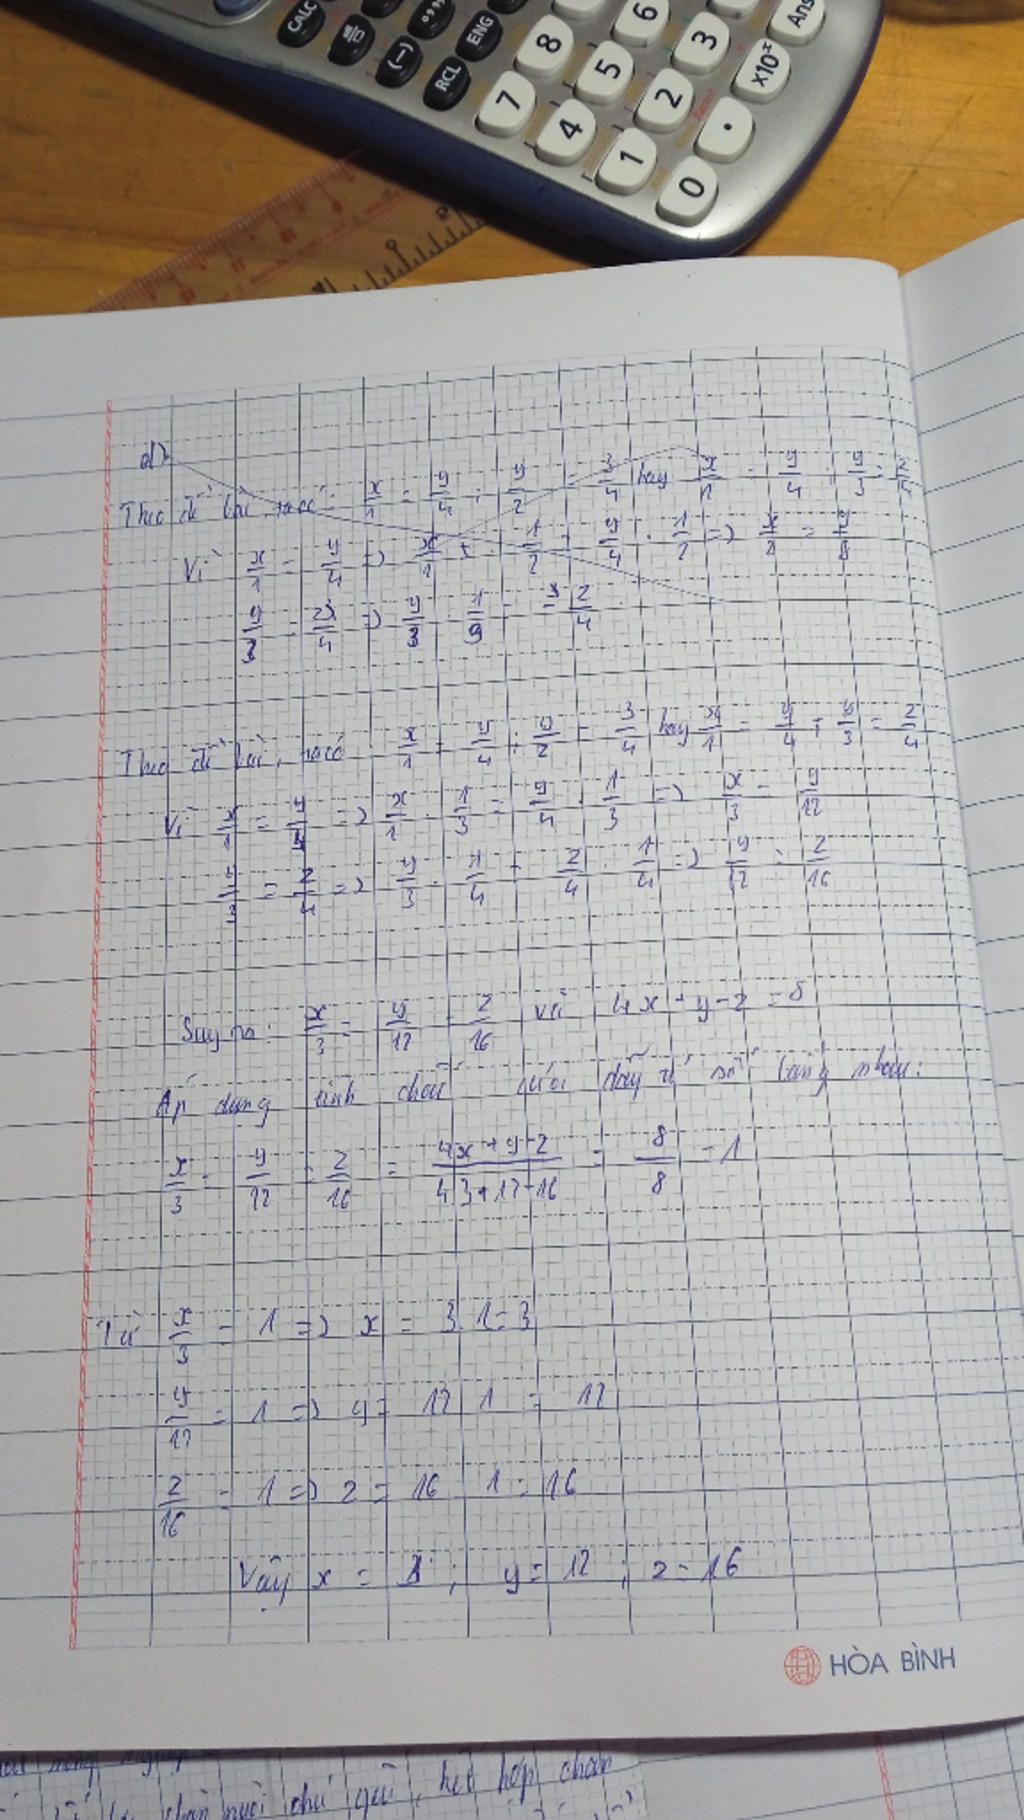 CALC
(−)
ENG
RCL
7 8
4 5 6
1 2 3
0 . x10ˣ Ans
d)
Theo đề bài, ta có: x/1 = y/4 ; y/2 = 3/4 hay x/1 = y/4 ; y/3 = z/4
Vì x/1 = y/4 => x/1 . 1/2 = y/4 . 1/2 => x/2 = y/8
y/3 = z/4 => y/3 . 1/3 = z/4
Theo đề bài, ta có x/1 = y/4 ; y/z = 3/4 hay x/1 = y/4 ; y/3 = z/4
Vì x/1 = y/4 => x/1 . 1/3 = y/4 . 1/3 => x/3 = y/12
y/3 = z/4 => y/3 . 1/4 = z/4 . 1/4 => y/12 = z/16
Suy ra: x/3 = y/12 = z/16 và 4x + y - z = 8
Áp dụng tính chất của dãy tỉ số bằng nhau:
x/3 = y/12 = z/16 = (4x + y - z)/(4.3 + 12 - 16) = 8/8 = 1
Từ x/3 = 1 => x = 3.1 = 3
y/12 = 1 => y = 12.1 = 12
z/16 = 1 => z = 16.1 = 16
Vậy x = 3 ; y = 12 ; z = 16
HÒA BÌNH
hợp chăn
chăn nuôi chú